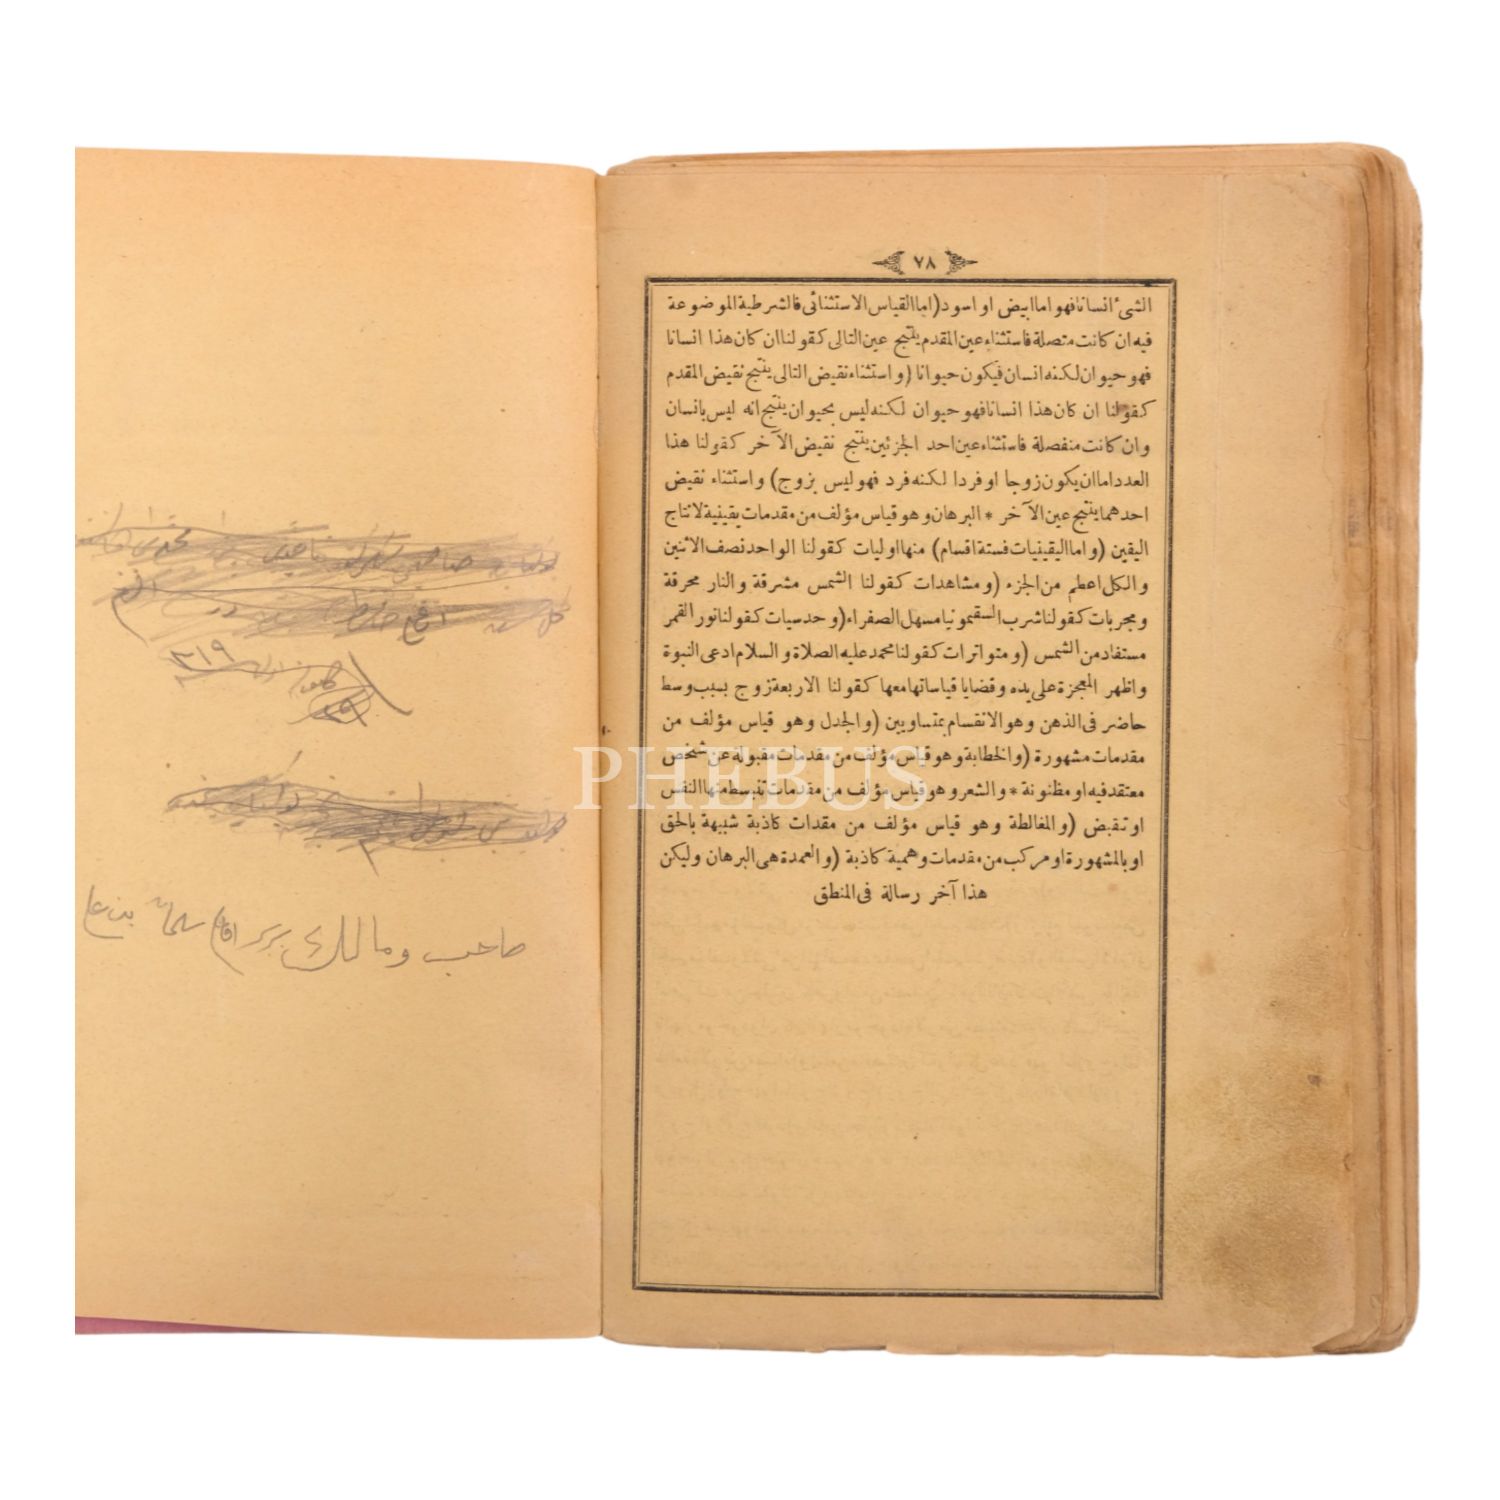 ٧٨
الشئ انسانا فهو اما ابيض او اسود (اما القياس الاستثنائى فالشرطية الموضوعة
فيه ان كانت متصلة فاستثناء عين المقدم ينتج عين التالى كقولنا ان كان هذا انسانا
فهو حيوان لكنه انسان فيكون حيوانا (واستثناء نقيض التالى ينتج نقيض المقدم
كقولنا ان كان هذا انسانا فهو حيوان لكنه ليس بحيوان ينتج انه ليس بانسان
وان كانت منفصلة فاستثناء عين احد الجزئين ينتج نقيض الآخر كقولنا هذا
العدد اما ان يكون زوجا او فردا لكنه فرد فهو ليس بزوج) واستثناء نقيض
احدهما ينتج عين الآخر * البرهان وهو قياس مؤلف من مقدمات يقينية لانتاج
اليقين (واما اليقينيات فستة اقسام) منها اوليات كقولنا الواحد نصف الاثنين
والكل اعظم من الجزء (ومشاهدات كقولنا الشمس مشرقة والنار محرقة
ومجربات كقولنا شرب السقمونيا مسهل الصفراء (وحدسيات كقولنا نور القمر
مستفاد من الشمس (ومتواترات كقولنا محمد عليه الصلاة والسلام ادعى النبوة
واظهر المعجزة على يده وقضايا قياساتها معها كقولنا الاربعة زوج بسبب وسط
حاضر فى الذهن وهو الانقسام بمتساويين (والجدل وهو قياس مؤلف من
مقدمات مشهورة (والخطابة وهو قياس مؤلف من مقدمات مقبولة عن شخص
معتقد فيه او مظنونة * والشعر وهو قياس مؤلف من مقدمات تنبسط منها النفس
او تقبض (والمغالطة وهو قياس مؤلف من مقدات كاذبة شبيهة بالحق
او بالمشهورة او مركب من مقدمات وهمية كاذبة (والعمدة هى البرهان وليكن
هذا آخر رسالة فى المنطق
٣١٩
صاحب ومالك
PHEBUS